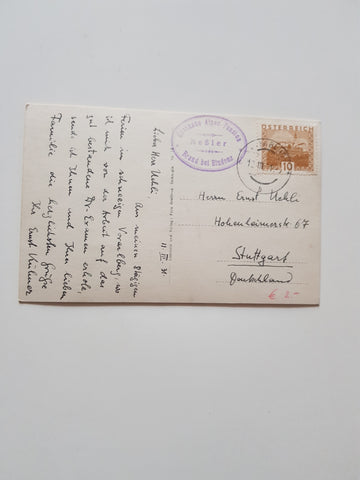 Lieber Herr Uehli,
11. III. 31
Aus meinen
Ferien im schneeigen Vorarlberg, wo
ich mich von der Arbeit auf das
gut bestandene Dr. Examen erhole,
sende ich Ihnen und Ihrer lieben
Familie die herzlichsten Grüße
Ihr Ernst
Alpen Pension
Keßler
Brand bei Bludenz
ÖSTERREICH
10
Herrn Ernst Uehli
Hohenheimerstr 67
Stuttgart
Deutschland
€ 2-